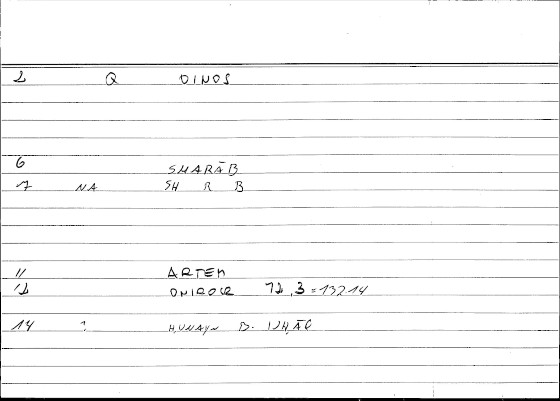 2 Q OINOS
6 SHARĀB
7 NA SH R B
11 ARTEM
12 ONIROCR 12,3=13214
14 ? ḤUNAYN B. ISḤĀQ